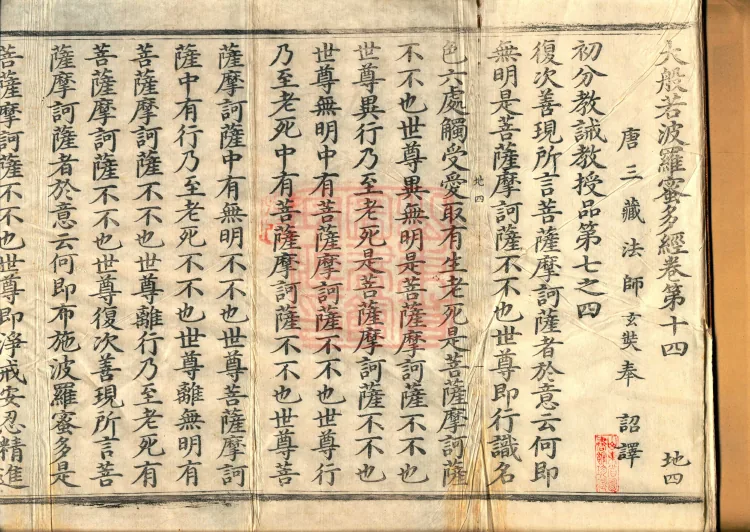 大般若波羅蜜多經卷第十四 地四
唐三藏法師玄奘奉 詔譯
初分教誡教授品第七之四
復次善現所言菩薩摩訶薩者於意云何即
無明是菩薩摩訶薩不不也世尊即行識名
地四 一
色六處觸受愛取有生老死是菩薩摩訶薩
不不也世尊異無明是菩薩摩訶薩不不也
世尊異行乃至老死是菩薩摩訶薩不不也
世尊無明中有菩薩摩訶薩不不也世尊行
乃至老死中有菩薩摩訶薩不不也世尊菩
薩摩訶薩中有無明不不也世尊菩薩摩訶
薩中有行乃至老死不不也世尊離無明有
菩薩摩訶薩不不也世尊離行乃至老死有
菩薩摩訶薩不不也世尊復次善現所言菩
薩摩訶薩者於意云何即布施波羅蜜多是
菩薩摩訶薩不不也世尊即淨戒安忍精進